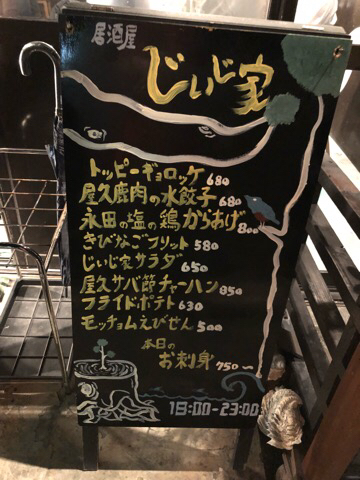 居酒屋
じぃじ家
トッピーギョロッケ 680
屋久鹿肉の水餃子 680
永田の塩の鶏からあげ 800
きびなごフリット 580
じぃじ家サラダ 650
屋久サバ節チャーハン 850
フライドポテト 630
モッチョムえびせん 500
本日の
お刺身 750〜
18:00-23:00